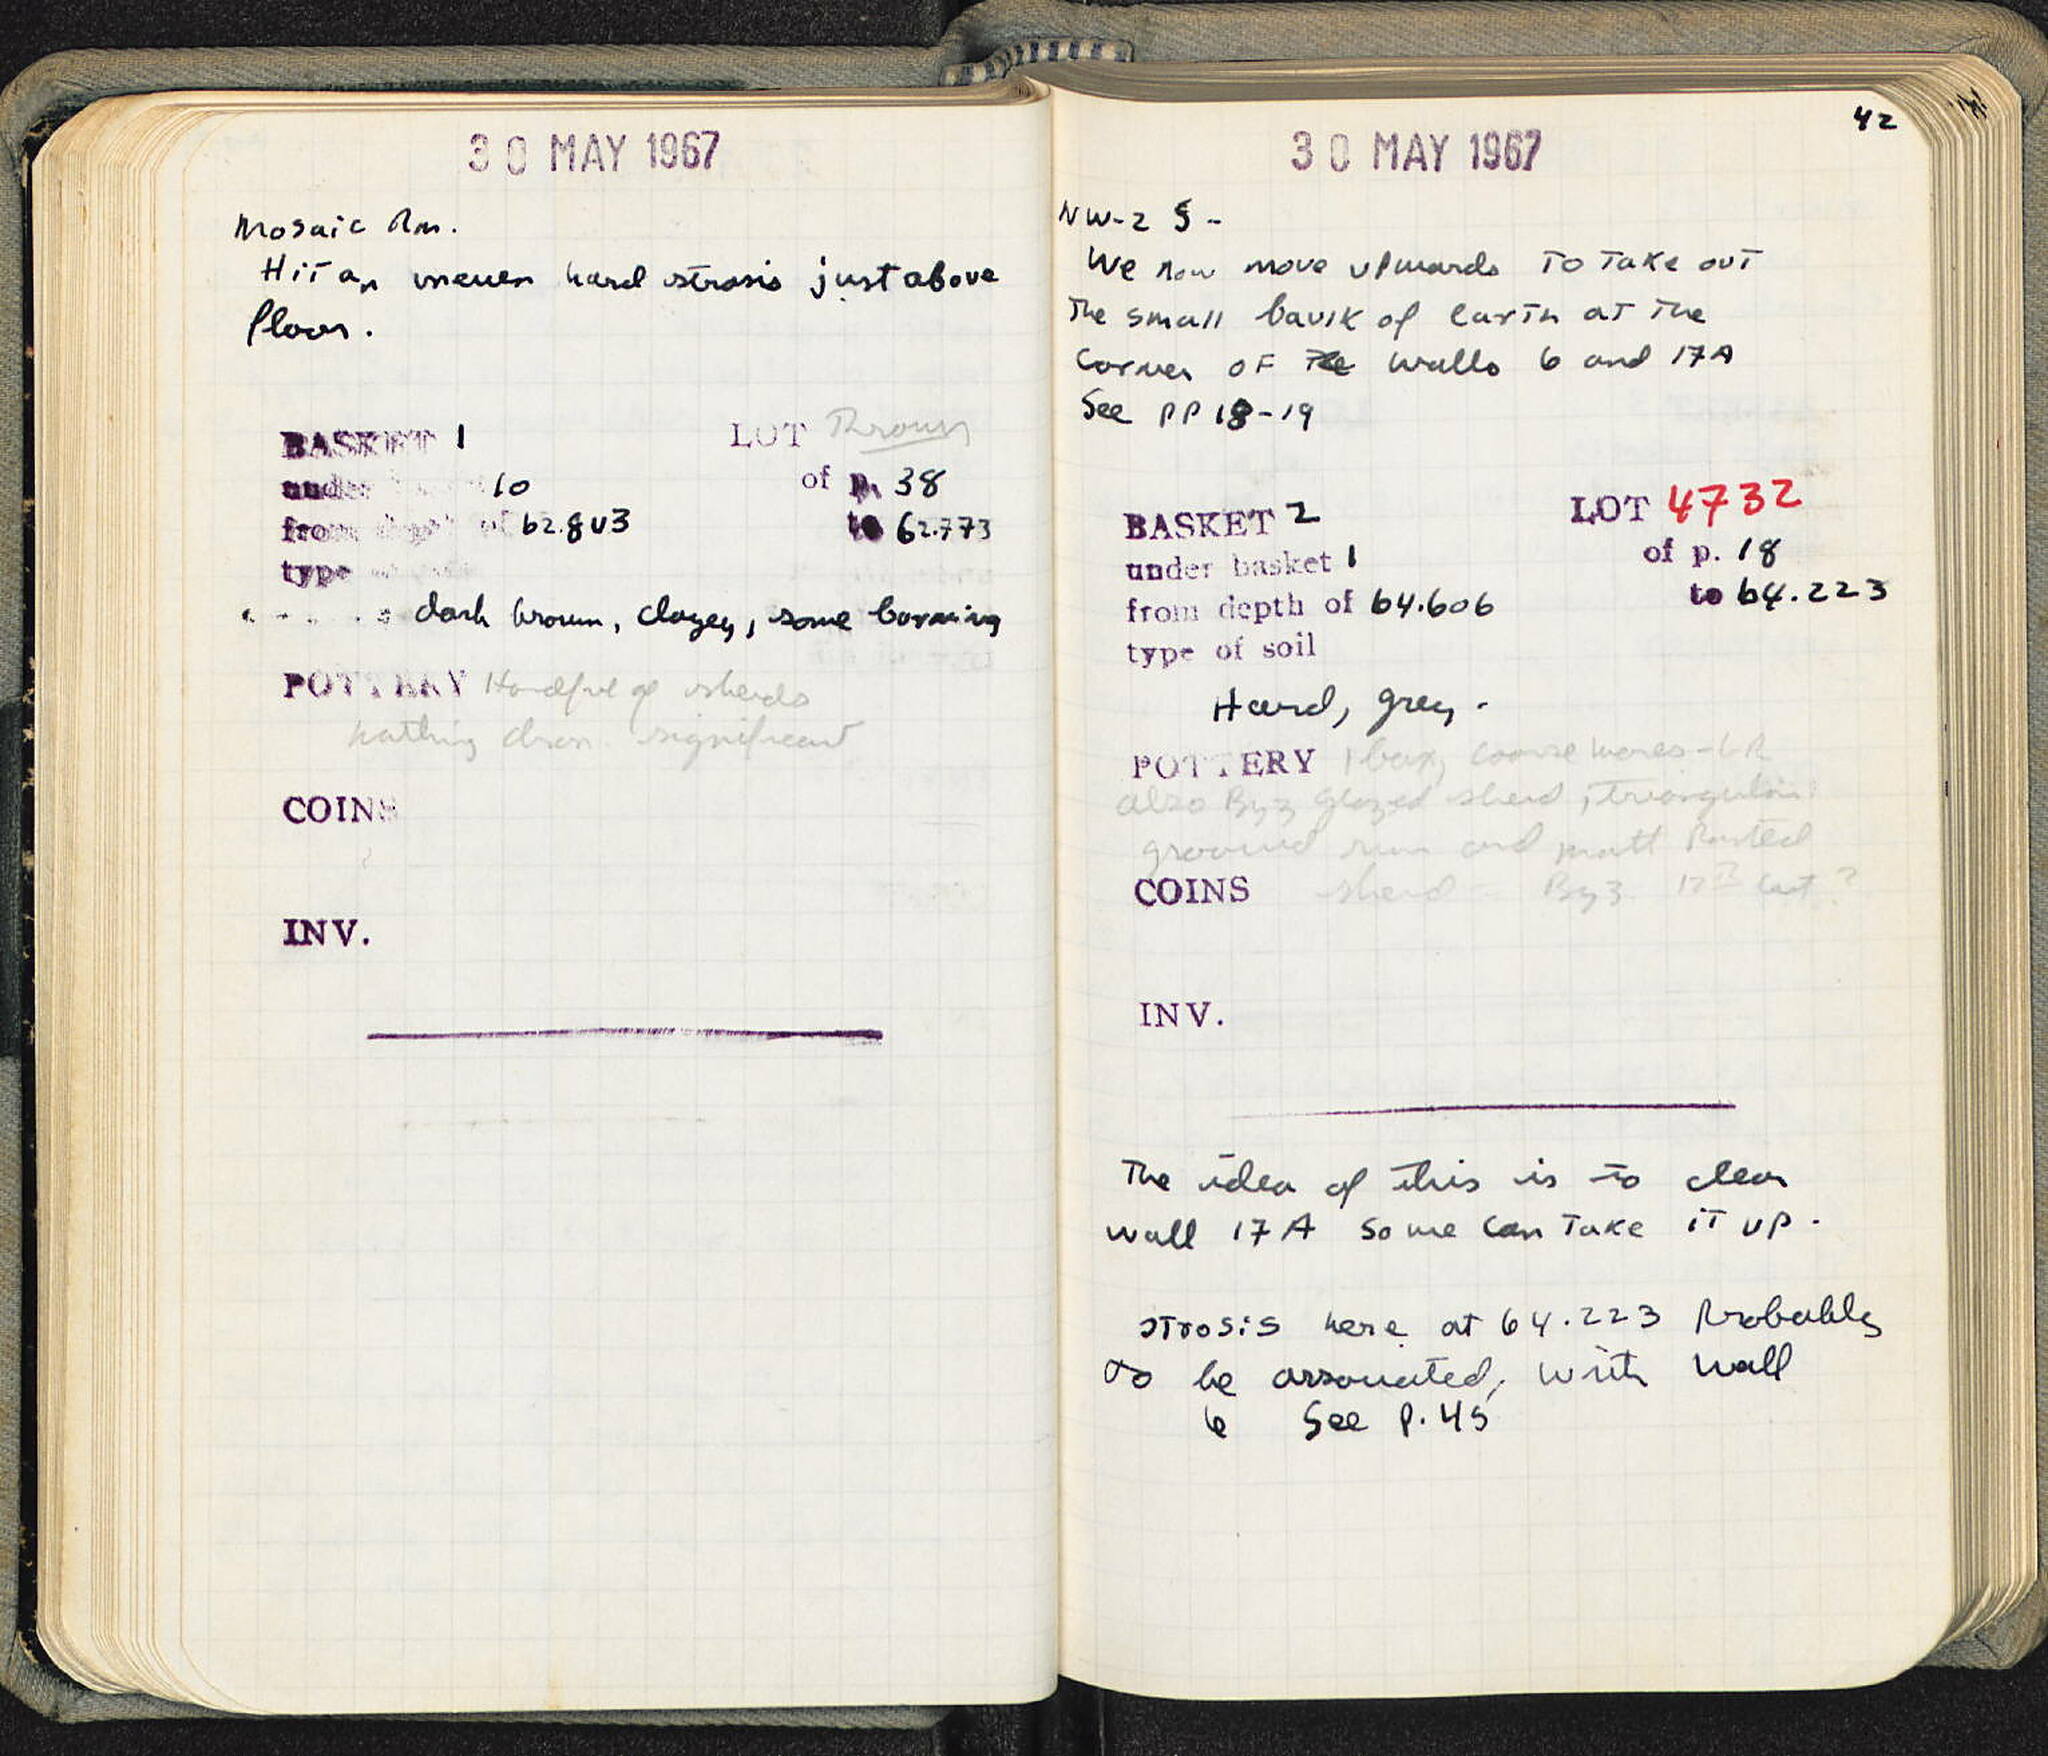 30 MAY 1967
Mosaic Rm.
Hit an uneven hard strosis just above
floor.
BASKET 1 LOT Thrown
under 10 of p. 38
from depth of 62.803 to 62.773
type
dark brown, clayey, some burning
POTTERY Handful of sherds
nothing significant
COINS
INV.
42
30 MAY 1967
NW-2 S-
We now move upwards to take out
the small baulk of earth at the
corner of the walls 6 and 17A
See pp 18-19
BASKET 2 LOT 4732
under basket 1 of p. 18
from depth of 64.606 to 64.223
type of soil
Hard, grey.
POTTERY 1 box, coarse wares - LR
also Byz glazed sherd, triangular
grooved rim and matt Painted
COINS sherd - Byz 12th cent?
INV.
The idea of this is to clear
wall 17A so we can take it up.
strosis here at 64.223 Probably
to be associated, with wall
6 See p. 45